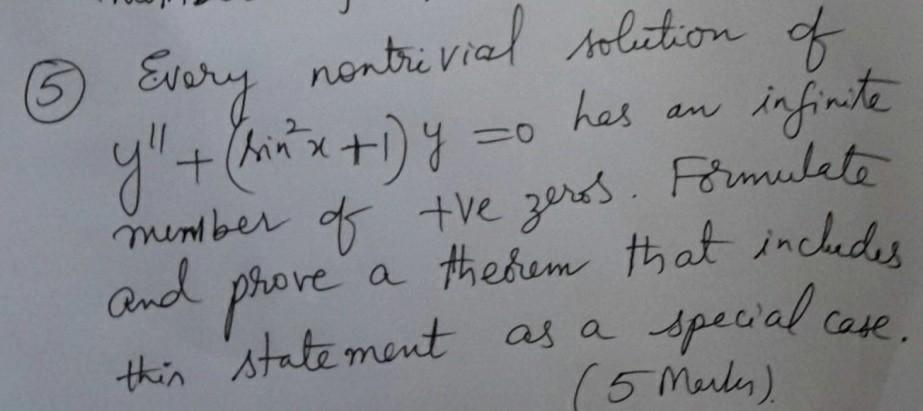 ⑤ Every nontrivial solution of
y'' + (sin²x + 1) y = 0 has an infinite
number of +ve zeros. Formulate
and prove a theorem that includes
this statement as a special case.
(5 Marks)